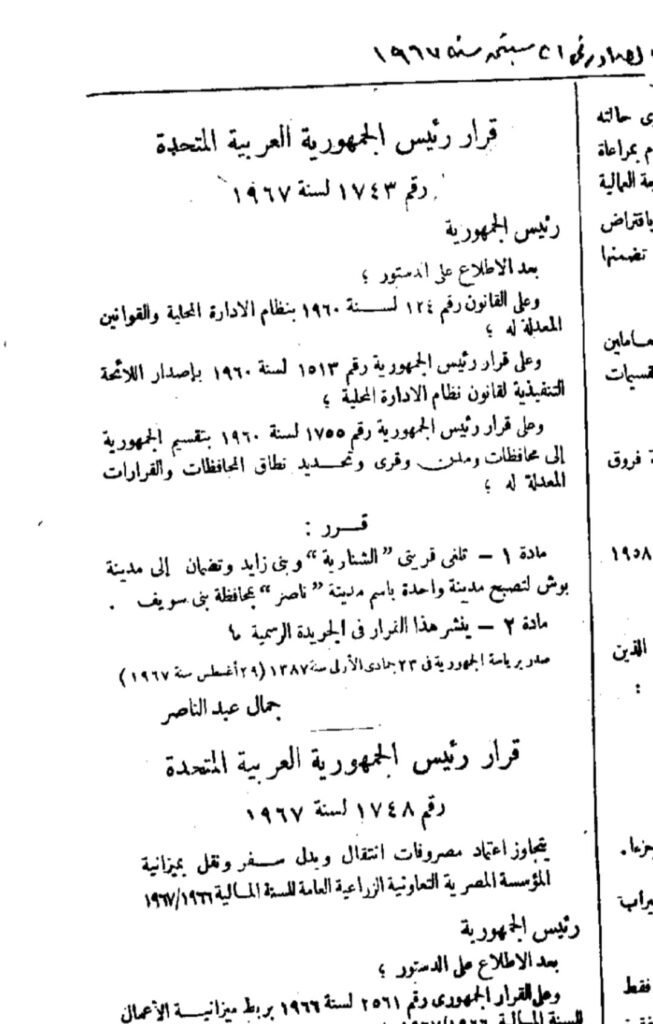 الصادر فى ٢١ سبتمبر سنة ١٩٦٧
ى حالته
م بمراعاة
ية العمالية
باقتراض
تضمنها
عاملين
قسيمات
ة فروق
١٩٥٨
الذين
:
جزءا.
فقط
قرار رئيس الجمهورية العربية المتحدة
رقم ١٧٤٣ لسنة ١٩٦٧
رئيس الجمهورية
بعد الاطلاع على الدستور ؛
وعلى القانون رقم ١٢٤ لسنة ١٩٦٠ بنظام الادارة المحلية والقوانين
المعدلة له ؛
وعلى قرار رئيس الجمهورية رقم ١٥١٣ لسنة ١٩٦٠ بإصدار اللائحة
التنفيذية لقانون نظام الادارة المحلية ؛
وعلى قرار رئيس الجمهورية رقم ١٧٥٥ لسنة ١٩٦٠ بتقسيم الجمهورية
إلى محافظات ومدن وقرى وتحديد نطاق المحافظات والقرارات
المعدلة له ؛
قرر :
مادة ١ – تلغى قريتى "الشنارية" وبنى زايد وتضمان إلى مدينة
بوش لتصبح مدينة واحدة باسم مدينة "ناصر" بمحافظة بنى سويف .
مادة ٢ – ينشر هذا القرار فى الجريدة الرسمية ؛
صدر برياسة الجمهورية فى ٢٣ جمادى الأولى سنة ١٣٨٧ (٢٩ أغسطس سنة ١٩٦٧)
جمال عبد الناصر
قرار رئيس الجمهورية العربية المتحدة
رقم ١٧٤٨ لسنة ١٩٦٧
بتجاوز اعتماد مصروفات انتقال وبدل سفر ونقل بميزانية
المؤسسة المصرية التعاونية الزراعية العامة للسنة المالية ١٩٦٧/١٩٦٦
رئيس الجمهورية
بعد الاطلاع على الدستور ؛
وعلى القرار الجمهورى رقم ٢٥٦١ لسنة ١٩٦٦ بربط ميزانية الأعمال
للسنة المالية ١٩٦٧/١٩٦٦